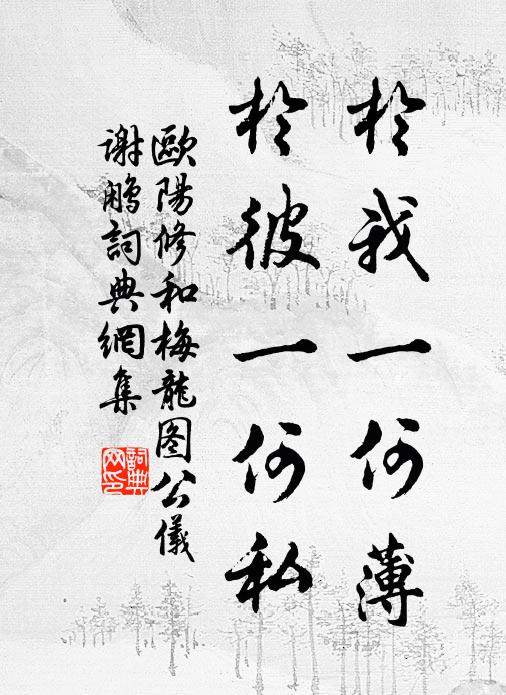 於我一何薄
於彼一何私
歐陽修和梅龍图公儀
谢鹏詞典網集
詞典
网印